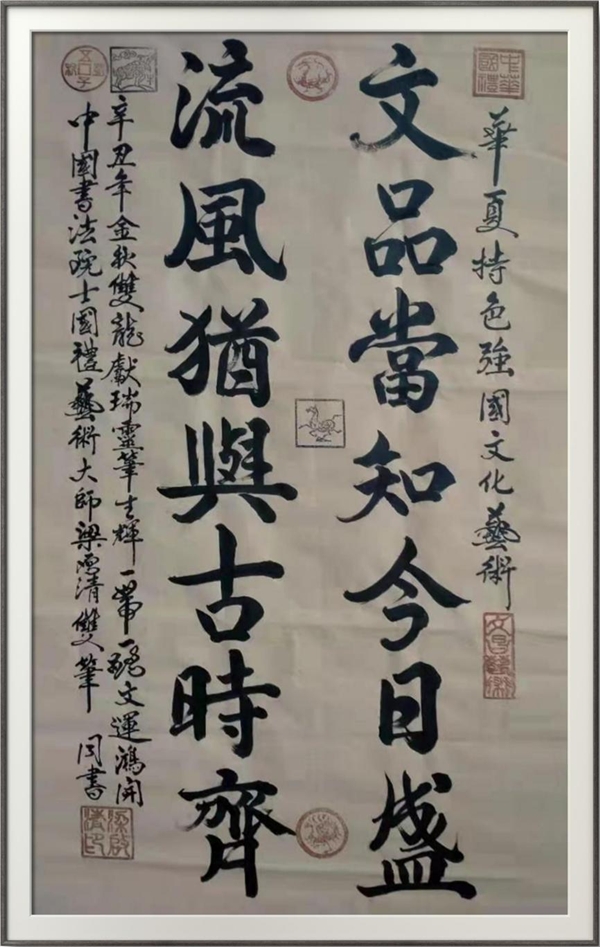 華夏持色強國文化藝術
文品當知今日盛
流風猶與古時齊
辛丑年金秋雙龍獻瑞靈筆生輝一帶一路文運鴻開
中國書法院士國禮藝術大師梁啓清雙筆同書
中華國禮